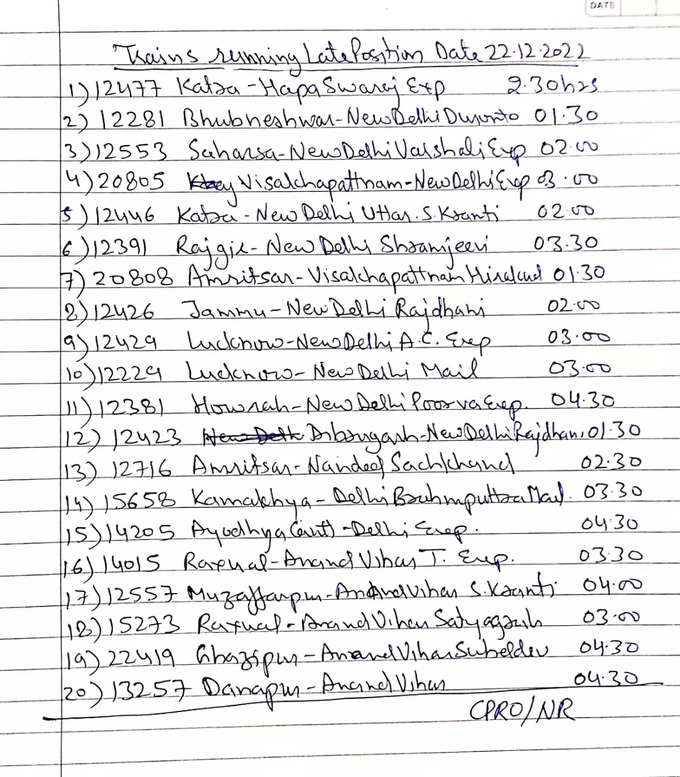 DATE
Trains running Late Position Date 22.12.2022
1) 12477 Katra - Hapa Swaraj Exp 2.30hrs
2) 12281 Bhubneshwar - New Delhi Duronto 01.30
3) 12553 Saharsa - New Delhi Vaishali Exp 02.00
4) 20805 Visakhapattnam - New Delhi Exp 03.00
5) 12446 Katra - New Delhi Uttar. S. Kranti 02.00
6) 12391 Rajgir - New Delhi Shramjeevi 03.30
7) 20808 Amritsar - Visakhapattnam Hirakud 01.30
8) 12426 Jammu - New Delhi Rajdhani 02.00
9) 12429 Lucknow - New Delhi A.C. Exp 03.00
10) 12229 Lucknow - New Delhi Mail 03.00
11) 12381 Howrah - New Delhi Poorva Exp. 04.30
12) 12423 New Delh Dibrugarh - New Delhi Rajdhani 01.30
13) 12716 Amritsar - Nanded Sachkhand 02.30
14) 15658 Kamakhya - Delhi Brahmputtra Mail. 03.30
15) 14205 Ayodhya Cantt - Delhi Exp. 04.30
16) 14015 Raxual - Anand Vihar T. Exp. 03.30
17) 12557 Muzaffarpur - Anand Vihar S. Kranti 04.00
18) 15273 Raxual - Anand Vihar Satyagarh 03.00
19) 22419 Ghazipur - Anand Vihar Suheldev 04.30
20) 13257 Danapur - Anand Vihar 04.30
CPRO/NR